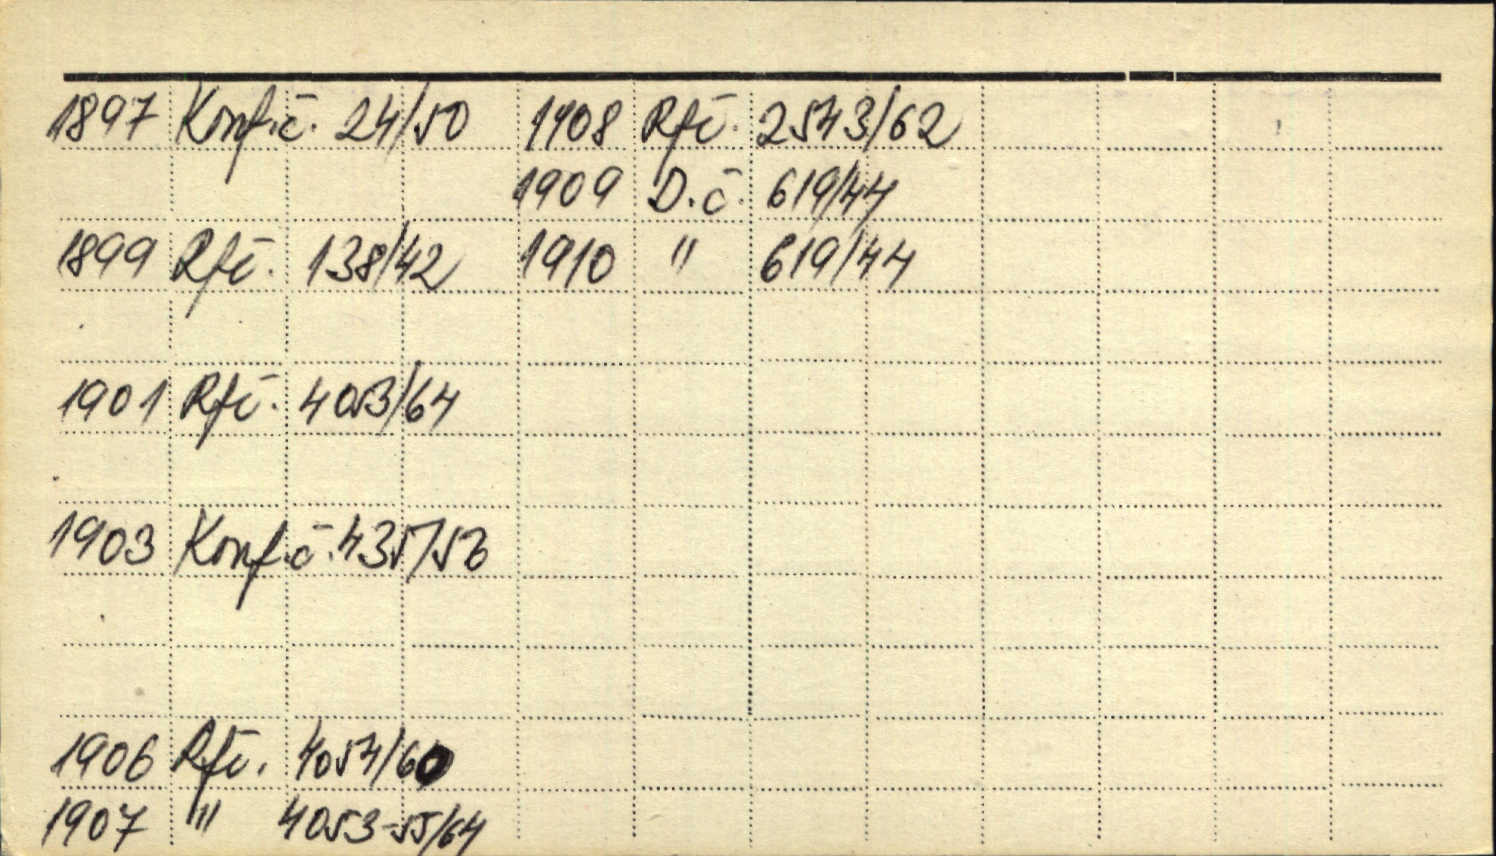 1897 Konf.č. 24/50
1899 Rfč. 138/42
1901 Rfč. 4053/64
1903 Konf.č. 435/56
1906 Rfč. 4054/60
1907 " 4053-55/64
1908 Rfč. 2543/62
1909 D.č. 619/44
1910 " 619/44